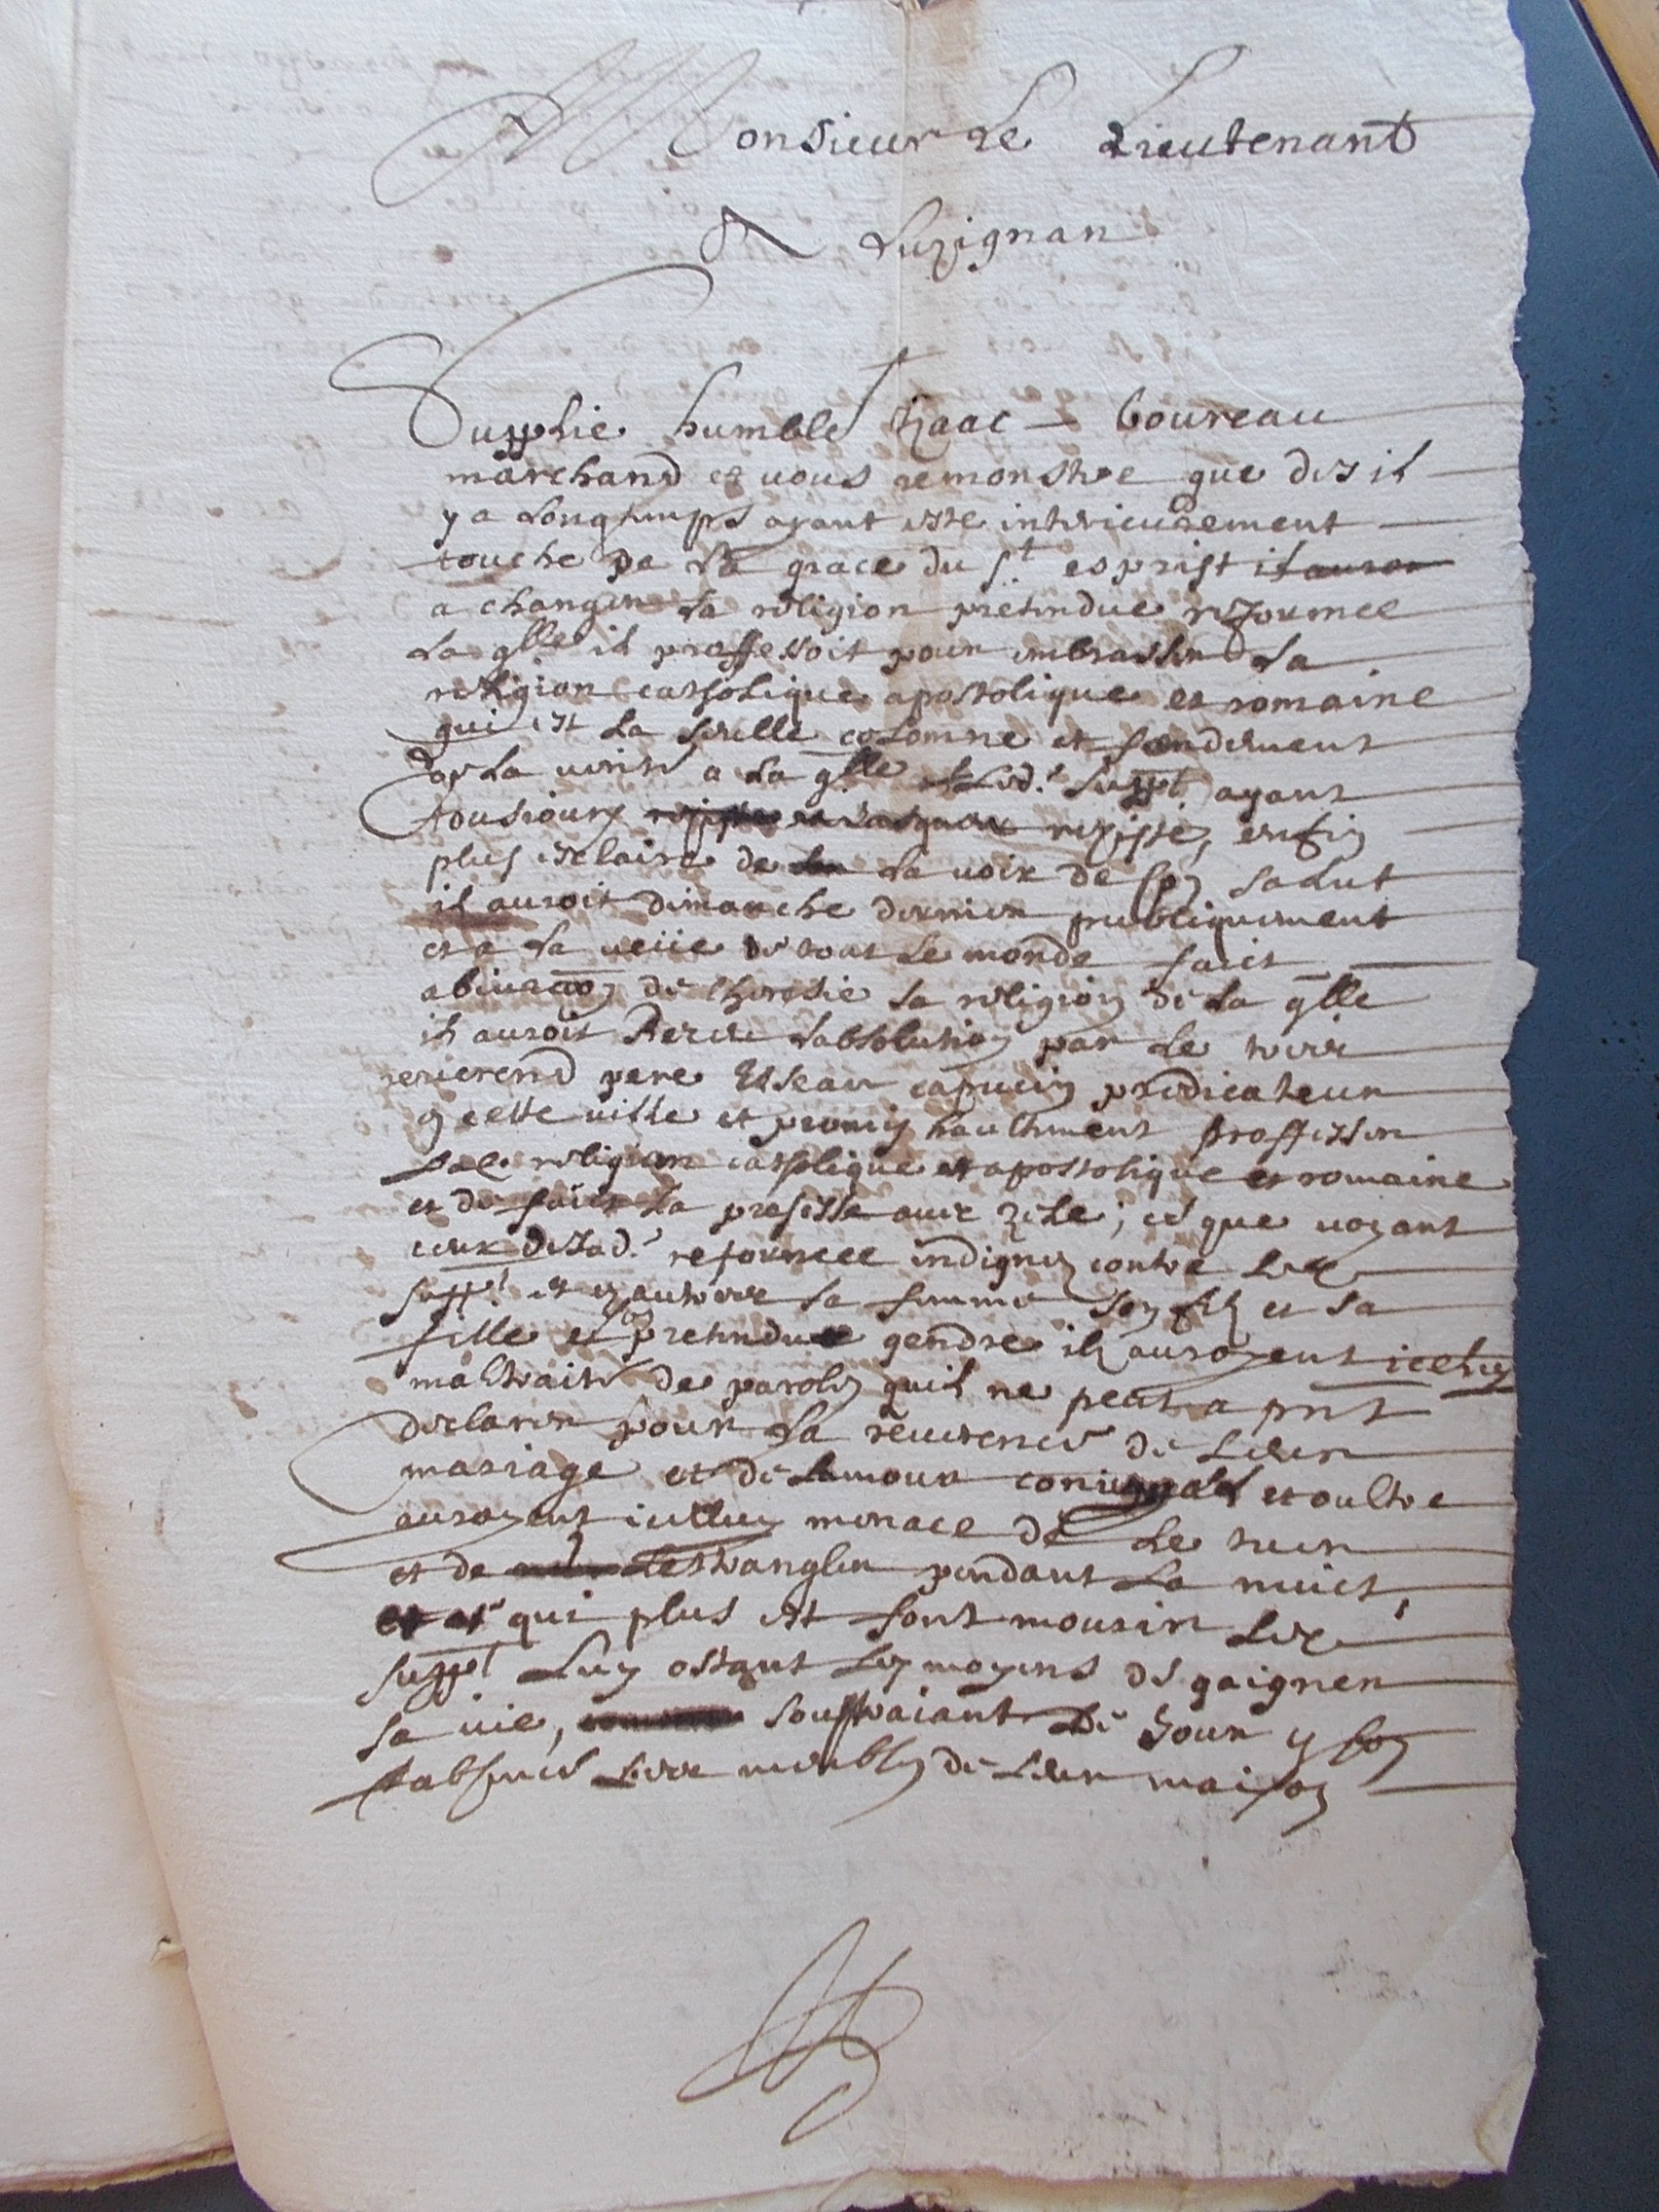 Monsieur Le Lieutenant
A Luzignan
Supplie humblet Izaac – Coureau
marchand et vous remonstre que des il
y a longtemps ayant esté interieurement
touche pa la grace du St esprist il auroi
a changer la religion pretendue reformee
laqlle il professoit pour embrasser la
religion catholique apostolique et romaine
qui est la seulle colomne et fondement
de la verité a la qlle led.t suppt ayant
tousiours resisté, enfin
plus esclairé de la voix de son salut
il auroit dimanche dernier publiquement
et a la veüe de tout le monde faict
abiuraon de lheresie la religion de la qlle
il auroit Receu labsolution par le
reverend pere capucin predicateur
en cette ville et promis haultement professer
lad. religion catholique et apostolique et romaine
et de faict la professe avec zele; et que voyant
ceux de lad.t reformee indignes contre led.
suppt et en autre sa femme son filz et sa
fille et son pretendu gendre ilz auroyent icelluy
maltraité de parolles quil ne peut a pnt
declarer pour la reverence de leur
mariage et de lamour coniugal et oultre
auroyent icelluy menacé de le tuer
et de lestrangler pendant la nuict,
et qui plus est font mourir led.
suppt luy ostant les moyens de gaigner
sa vie, soustraiant de jour en son
absence leur meubles de leur maison